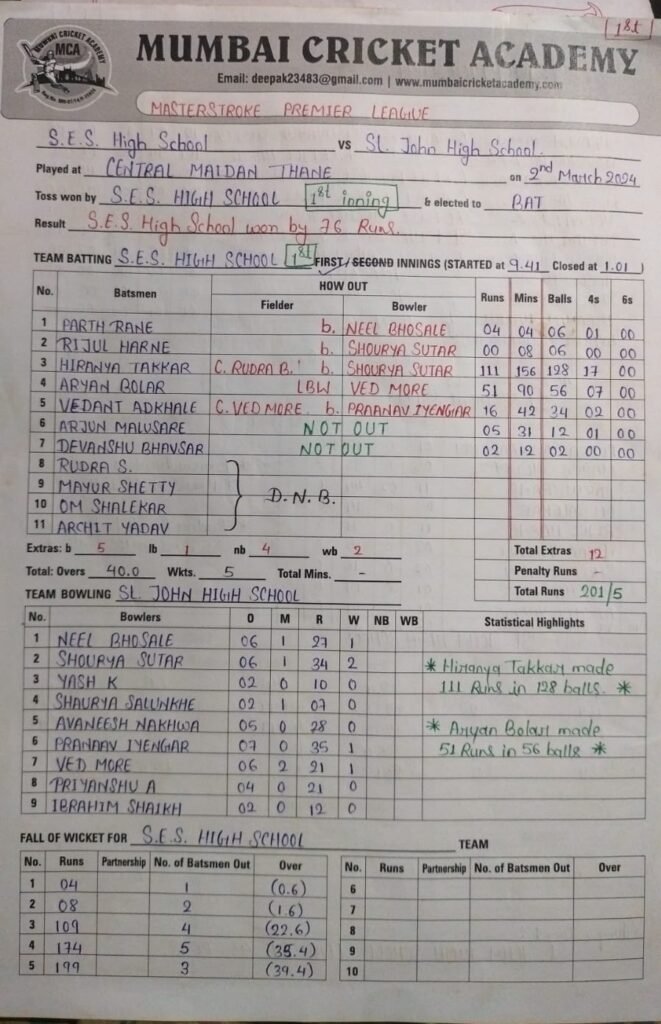 1st
MUMBAI CRICKET ACADEMY
MCA
MUMBAI CRICKET ACADEMY
Email: deepak23483@gmail.com | www.mumbaicricketacademy.com
MASTERSTROKE PREMIER LEAGUE
S.E.S. High School vs St. John High School.
Played at CENTRAL MAIDAN THANE on 2nd March 2024
Toss won by S.E.S. HIGH SCHOOL 1st inning & elected to BAT
Result S.E.S. High School won by 76 Runs.
TEAM BATTING S.E.S. HIGH SCHOOL 1st FIRST / SECOND INNINGS (STARTED at 9.41 Closed at 1.01 )
No. Batsmen HOW OUT Runs Mins Balls 4s 6s
Fielder Bowler
1 PARTH RANE b. NEEL BHOSALE 04 04 06 01 00
2 RIJUL HARNE b. SHOURYA SUTAR 00 08 06 00 00
3 HIRANYA TAKKAR C. RUDRA B. b. SHOURYA SUTAR 111 156 128 17 00
4 ARYAN BOLAR LBW VED MORE 51 90 56 07 00
5 VEDANT ADKHALE C. VED MORE b. PRAANAV IYENGAR 16 42 34 02 00
6 ARJUN MALUSARE NOT OUT 05 31 12 01 00
7 DEVANSHU BHAVSAR NOT OUT 02 12 02 00 00
8 RUDRA S.
9 MAYUR SHETTY D.N.B.
10 OM SHALEKAR
11 ARCHIT YADAV
Extras: b 5 lb 1 nb 4 wb 2 Total Extras 12
Total: Overs 40.0 Wkts. 5 Total Mins. - Penalty Runs -
Total Runs 201/5
TEAM BOWLING St. JOHN HIGH SCHOOL
No. Bowlers O M R W NB WB Statistical Highlights
1 NEEL BHOSALE 06 1 27 1
2 SHOURYA SUTAR 06 1 34 2 * Hiranya Takkar made
3 YASH K 02 0 10 0 111 Runs in 128 balls. *
4 SHAURYA SALUNKHE 02 1 07 0
5 AVANEESH NAKHWA 05 0 28 0 * Aryan Bolar made
6 PRANAAV IYENGAR 07 0 35 1 51 Runs in 56 balls *
7 VED MORE 06 2 21 1
8 PRIYANSHU A 04 0 21 0
9 IBRAHIM SHAIKH 02 0 12 0
FALL OF WICKET FOR S.E.S. HIGH SCHOOL TEAM
No. Runs Partnership No. of Batsmen Out Over No. Runs Partnership No. of Batsmen Out Over
1 04 1 (0.6) 6
2 08 2 (1.6) 7
3 109 4 (22.6) 8
4 174 5 (35.4) 9
5 199 3 (39.4) 10